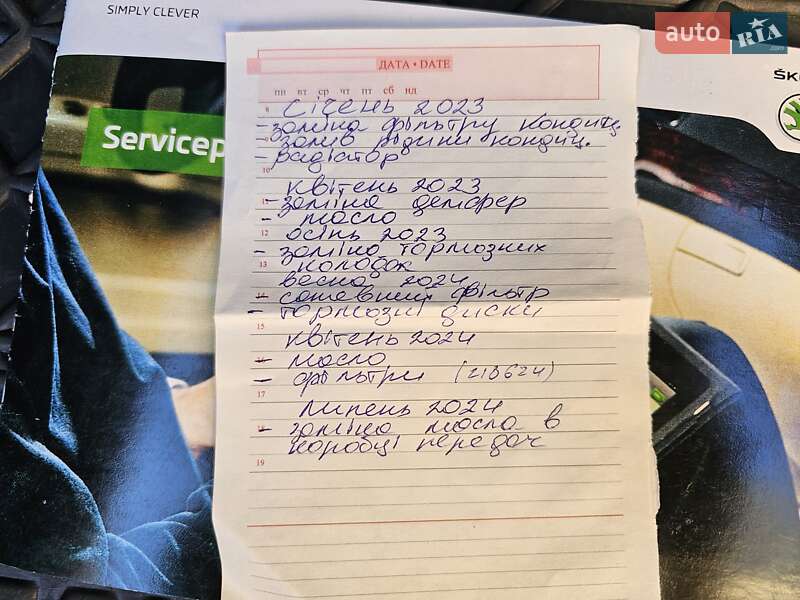 SIMPLY CLEVER
auto RIA
ŠK
Servicep
ДАТА • DATE
пн вт ср чт пт сб нд
8 січень 2023
- заміна фільтру кондиц.
- залив рідини кондиц.
- радіатор
10
квітень 2023
11 - заміна демфер
- масло
12 осінь 2023
- заміна тормозних
13 колодок
весна 2024
14 - сажевий фільтр
- тормозні диски
15
квітень 2024
16 - масло
- фільтри (213624)
17
липень 2024
18 - заміна масла в
коробці передач
19